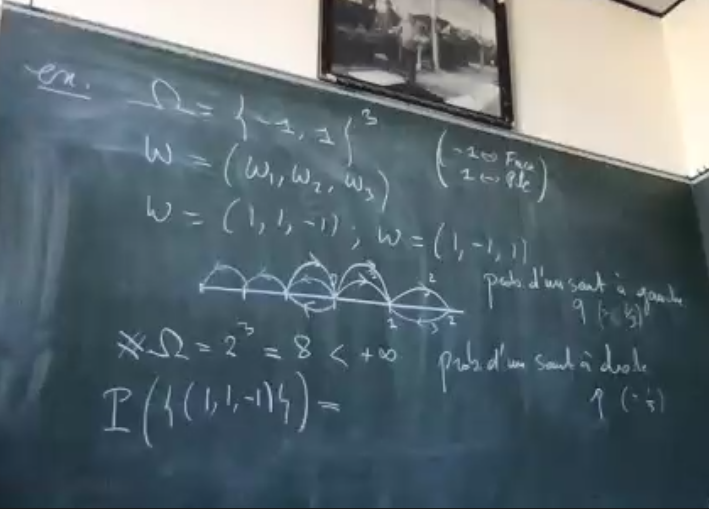 ex. Ω = {-1, 1}^3
(-1 ↔ Face
1 ↔ Pile)
ω = (ω₁, ω₂, ω₃)
ω = (1, 1, -1) ; ω = (1, -1, 1)
2
1 3 2
prob. d'un saut à gauche
#Ω = 2^3 = 8 < +∞
prob. d'un saut à droite
P({(1, 1, -1)}) =